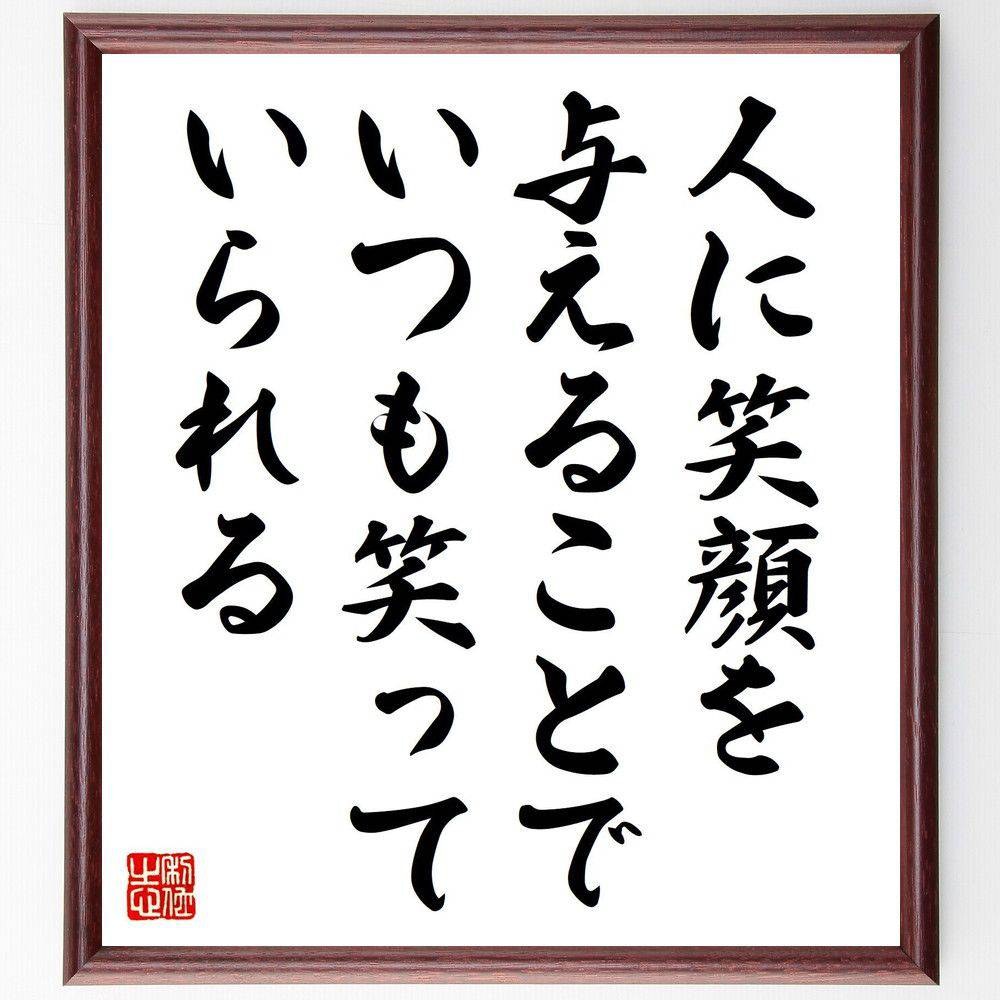 人に笑顔を
与えることで
いつも笑って
いられる